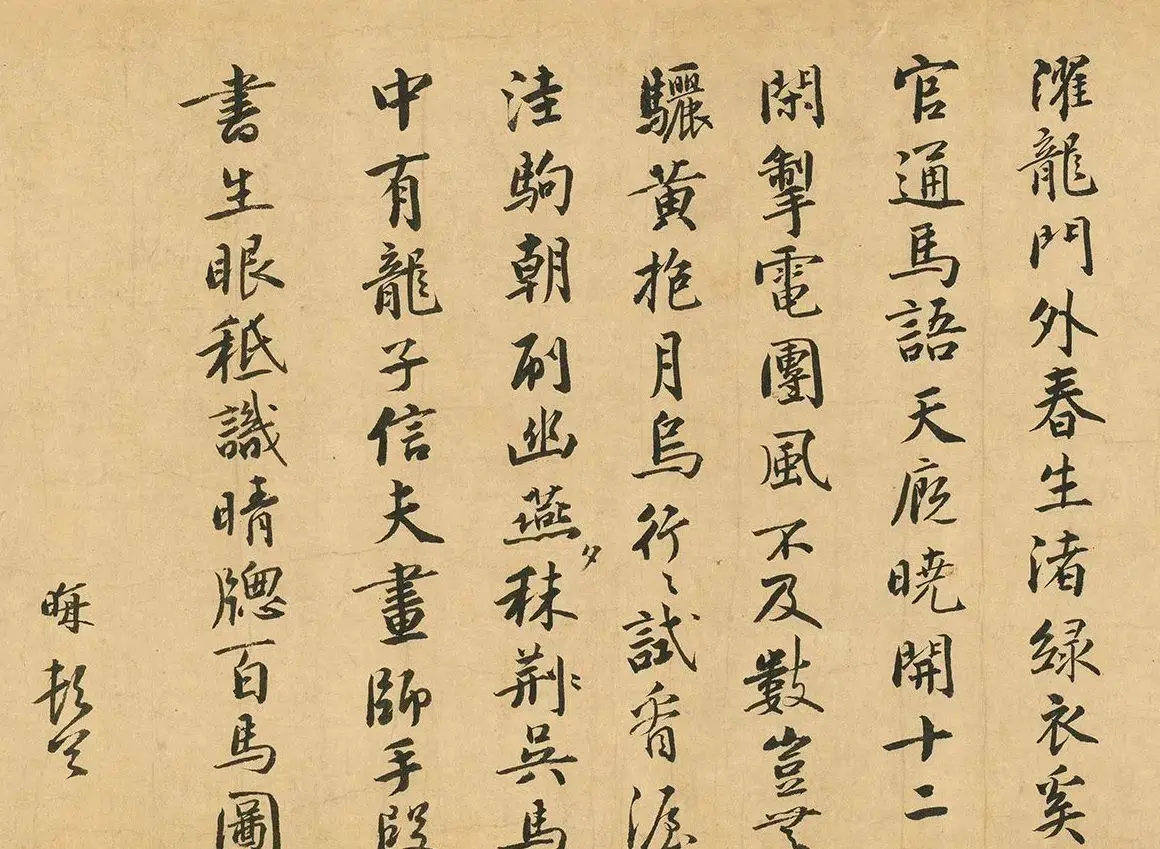 濯龍門外春生渚綠衣奚
官通馬語天廄曉開十二
閑掣電團風不及數豈無
驪黃抱月烏行〻試看渥
洼駒朝刷幽燕夕秣荊〻吳馬
中有龍子信夫畫師手段
書生眼秪識晴牕百馬圖
晦